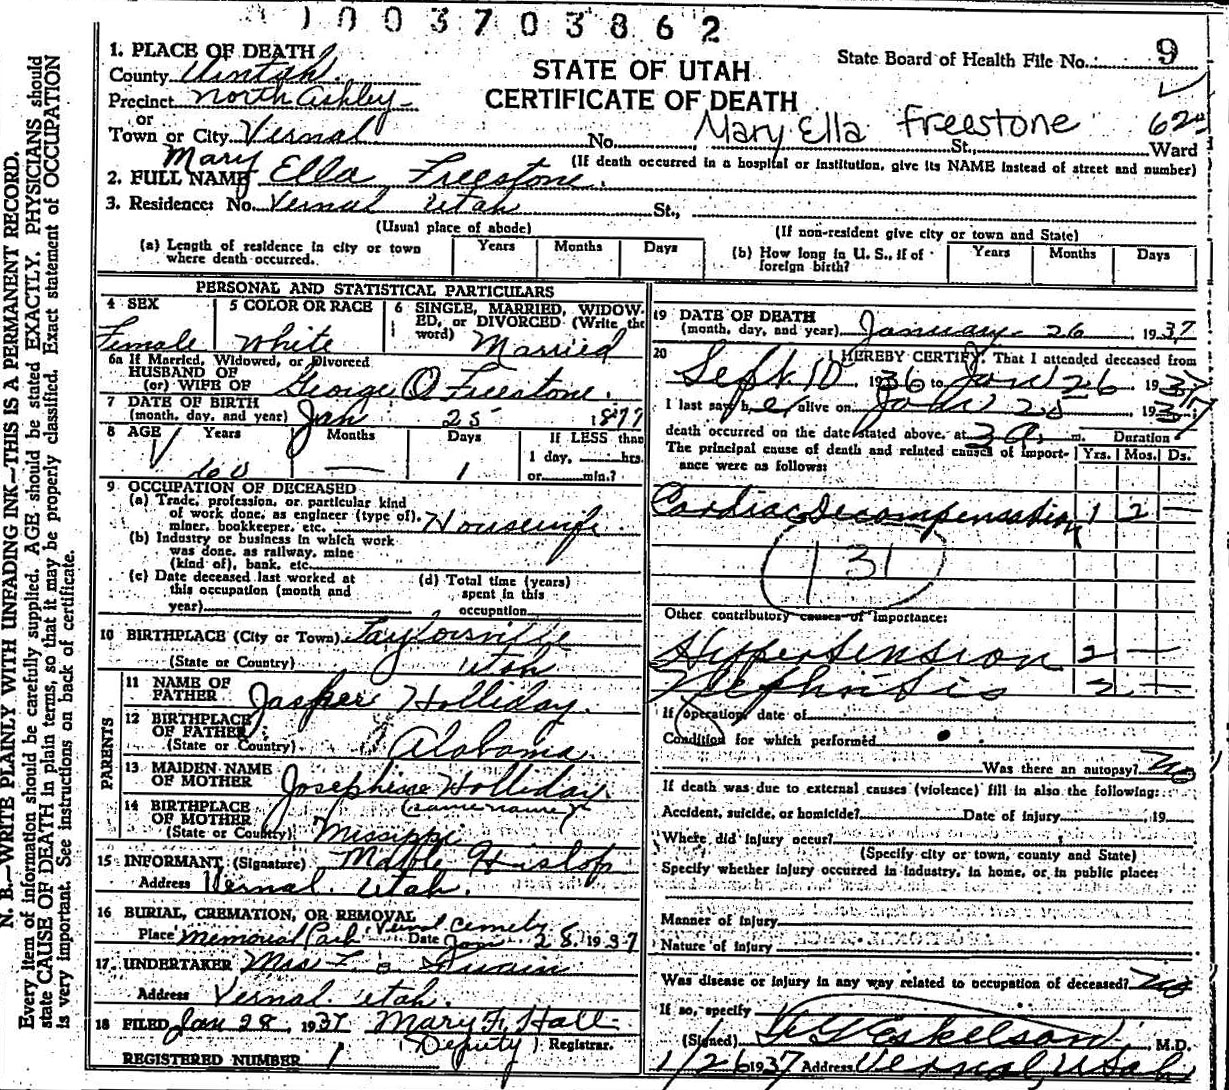 1003703862
1. PLACE OF DEATH
County Uintah.
Precinct North Ashley
or
Town or City Vernal
State Board of Health File No. 9
STATE OF UTAH
CERTIFICATE OF DEATH
Mary Ella Freestone
No. St., Ward
(If death occurred in a hospital or institution, give its NAME instead of street and number)
2. FULL NAME Mary Ella Freestone.
3. Residence: No. Vernal Utah St.,
(Usual place of abode) (If non-resident give city or town and State)
(a) Length of residence in city or town where death occurred. Years Months Days
(b) How long in U. S., if of foreign birth? Years Months Days
PERSONAL AND STATISTICAL PARTICULARS
4 SEX Female
5 COLOR OR RACE White
6 SINGLE, MARRIED, WIDOWED, or DIVORCED (Write the word) Married
6a If Married, Widowed, or Divorced
HUSBAND OF
(or) WIFE OF George O Freestone.
7 DATE OF BIRTH
(month, day, and year) Jan 25 1877
8 AGE Years Months Days If LESS than
60 — 1 1 day, hrs.
or min.?
9 OCCUPATION OF DECEASED
(a) Trade, profession, or particular kind
of work done, as engineer (type of),
miner, bookkeeper, etc. Housewife
(b) Industry or business in which work
was done, as railway, mine
(kind of), bank, etc.
(c) Date deceased last worked at
this occupation (month and
year)
(d) Total time (years)
spent in this
occupation
10 BIRTHPLACE (City or Town) Taylorsville
(State or Country) Utah
PARENTS
11 NAME OF
FATHER Jasper Holliday.
12 BIRTHPLACE
OF FATHER
(State or Country) Alabama
13 MAIDEN NAME
OF MOTHER Josephine Holliday.
(same name)
14 BIRTHPLACE
OF MOTHER
(State or Country) Missippi
15 INFORMANT (Signature) Mable Hislop
Address Vernal. Utah.
16 BURIAL, CREMATION, OR REMOVAL
Place Memorial Park Date Jan 28, 1937
17 UNDERTAKER Swain
Address Vernal. Utah.
18 FILED Jan 28, 1937 Mary F. Hall
(Deputy) Registrar.
REGISTERED NUMBER 1
19 DATE OF DEATH
(month, day, and year) January 26 1937
20 I HEREBY CERTIFY, That I attended deceased from
Sept. 10, 1936 to Jan 26 1937
I last saw her alive on Jan 25 1937
death occurred on the date stated above, at 3 a. m. Duration
The principal cause of death and related causes of importance were as follows: Yrs. Mos. Ds.
Cardiac Decompensation 1 2 —
131
Other contributory causes of importance:
Hypertension 2 —
Nephritis 2 —
If operation, date of
Condition for which performed
Was there an autopsy? No
If death was due to external causes (violence) fill in also the following:
Accident, suicide, or homicide? Date of injury , 19
Where did injury occur?
(Specify city or town, county and State)
Specify whether injury occurred in industry, in home, or in public place:
Manner of injury
Nature of injury
Was disease or injury in any way related to occupation of deceased? No
If so, specify
(Signed) Eskelson, M.D.
1/26 1937 Address Vernal, Utah
N. B.—WRITE PLAINLY WITH UNFADING INK—THIS IS A PERMANENT RECORD.
Every item of information should be carefully supplied. AGE should be stated EXACTLY. PHYSICIANS should
state CAUSE OF DEATH in plain terms, so that it may be properly classified. Exact statement of OCCUPATION
is very important. See instructions on back of certificate.